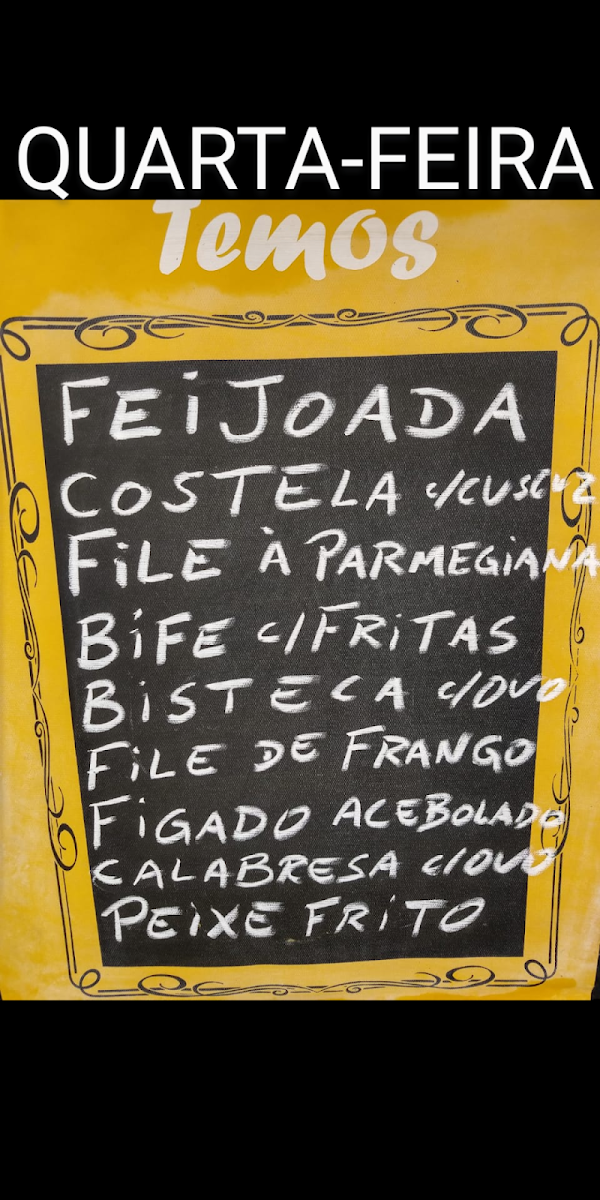 QUARTA-FEIRA
Temos
FEiJOADA
COSTELA c/CUSCUZ
FiLE À PARMEGiANA
BiFE c/FRiTAS
BiSTECA c/OVO
FiLE DE FRANGO
FiGADO ACEBOLADO
CALABRESA c/OVO
PEiXE FRiTO